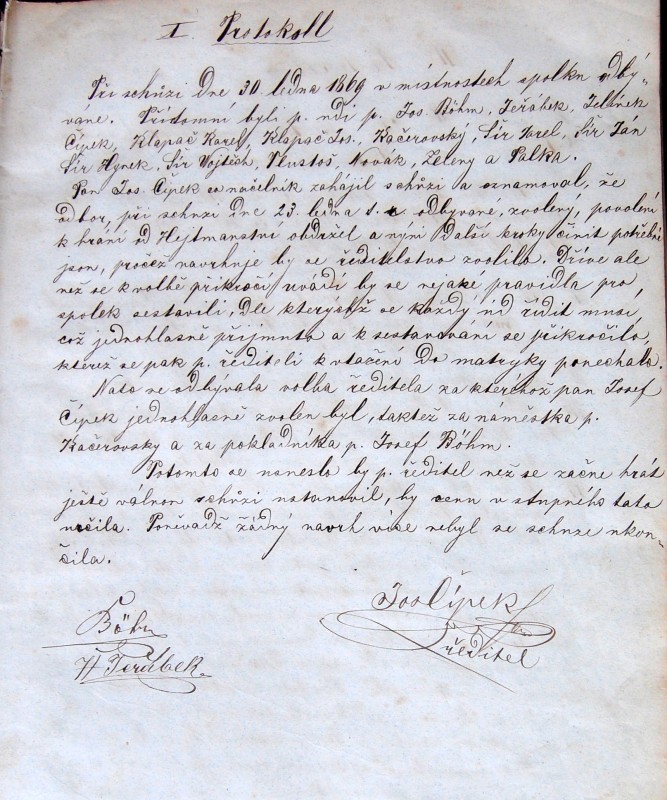 I. Protokoll
Při schůzi dne 30. ledna 1869 v místnostech spolku odbý-
vané. Přídomní byli p. údi p. Jos. Böhm, Jeřábek, Jellínek
Čípek, Klapač Karel, Klapač Jos., Kačerovský, Šír Karel, Šír Ján
Šír Hynek, Šír Vojtěch, Novak, Zeleny a Palka.
Pan Jos. Čípek co načelník zahájil schůzi a oznamoval, že
odbor, při schuzi dne 23. ledna t. r. odbyvané, zvolený, povolení
k hrání od Hejtmanství obdržel a nyní další kroky činit potřební
jsou, pročež navrhuje by se ředitelstvo zvolilo. Dříve ale
než se k volbě prikročí uvádí by se nejaké pravidla pro
spolek sestavili, dle kterýchž se každý úd řídit musí,
což jednohlasně přijmuto a k sestavování se přikročilo,
kterež se pak p. řediteli k vtačění do matryky ponechala.
Nato se odbyvala volba ředitela za kterehož pan Josef
Čípek jednohlasně zvolen byl, taktéž za naměstka p.
Kačerovsky a za pokladníka p. Josef Böhm.
Potomto se naneslo by p. ředitel než se začne hrát
ještě válnou schůzi ustanovil, by cenu v stupního tato
určila. Poněvádž žádný navrh více nebyl se schuze ukon-
čila.
Jos Čípek
ředitel
Böhm
Jeřábek